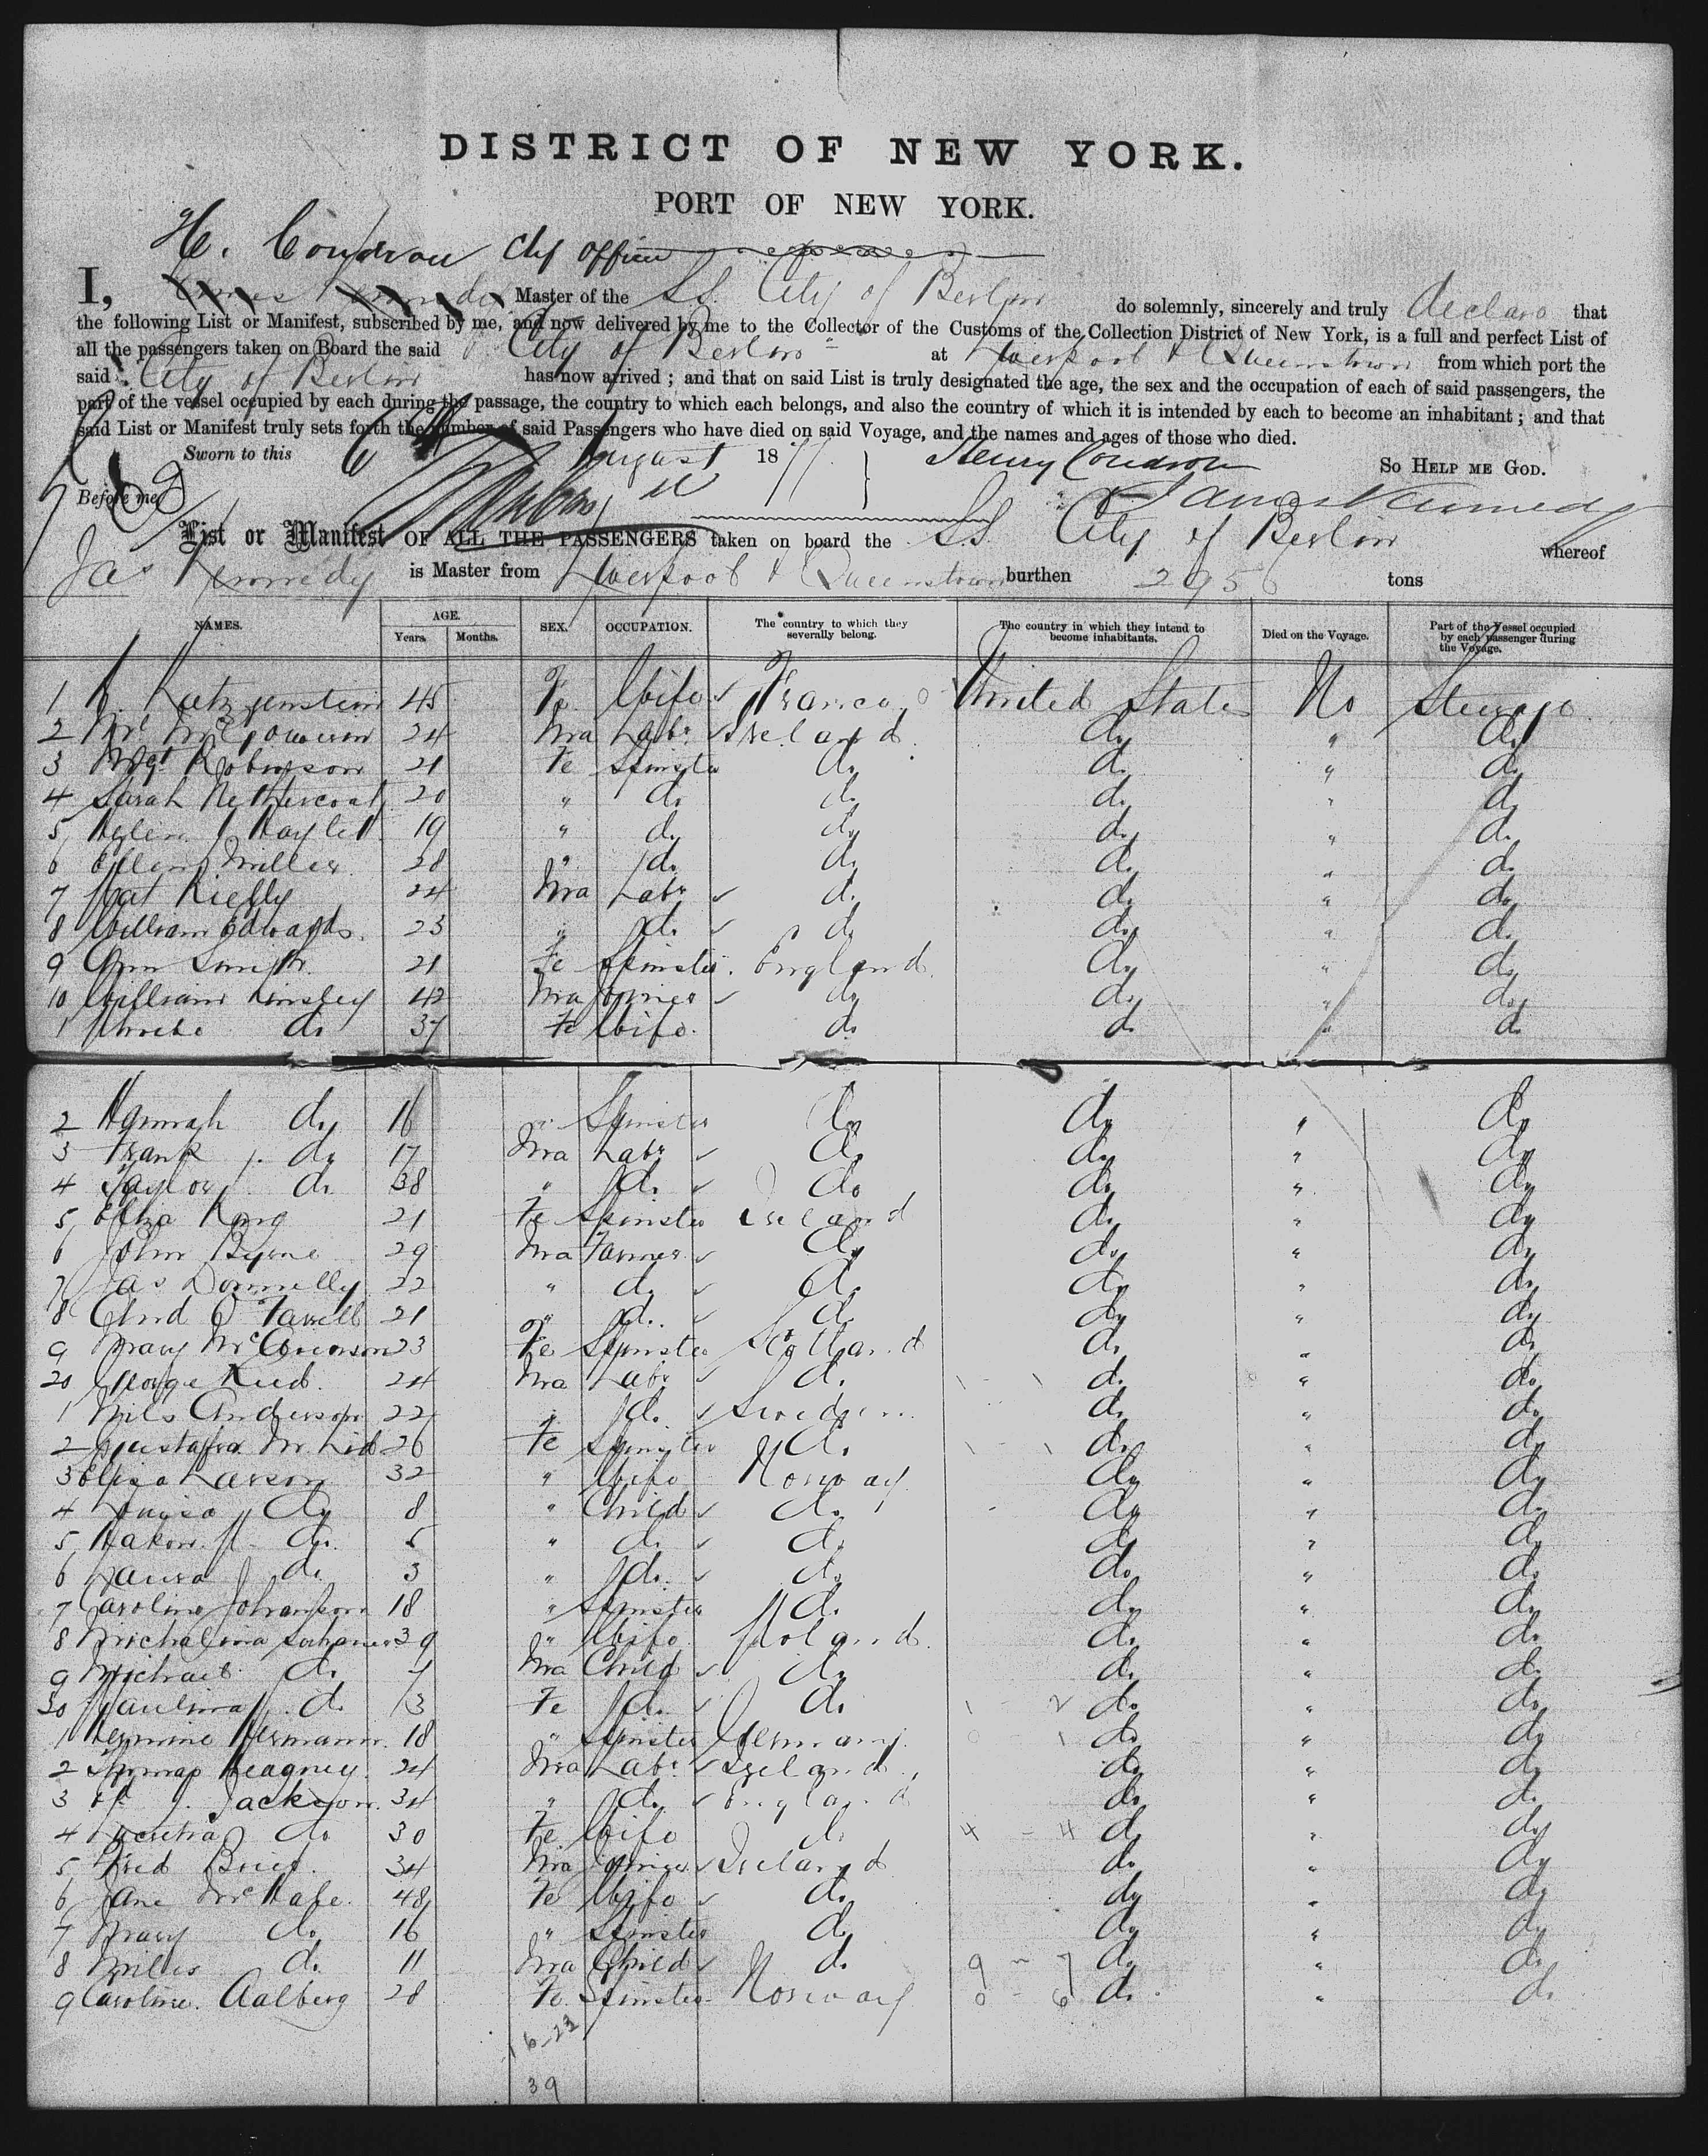 DISTRICT OF NEW YORK.
PORT OF NEW YORK.
H. Condron Chf Officer
I, Master of the S.S. City of Berlin do solemnly, sincerely and truly declare that
the following List or Manifest, subscribed by me, and now delivered by me to the Collector of the Customs of the Collection District of New York, is a full and perfect List of
all the passengers taken on Board the said City of Berlin at Liverpool & Queenstown from which port the
said City of Berlin has now arrived ; and that on said List is truly designated the age, the sex and the occupation of each of said passengers, the
part of the vessel occupied by each during the passage, the country to which each belongs, and also the country of which it is intended by each to become an inhabitant ; and that
said List or Manifest truly sets forth the number of said Passengers who have died on said Voyage, and the names and ages of those who died.
Sworn to this 6 August 1877 Henry Condron So HELP ME GOD.
Before me James Kennedy
List or Manifest OF ALL THE PASSENGERS taken on board the S.S. City of Berlin whereof
Jas Kennedy is Master from Liverpool & Queenstown burthen 2956 tons
NAMES. AGE. Years. Months. SEX. OCCUPATION. The country to which they severally belong. The country in which they intend to become inhabitants. Died on the Voyage. Part of the Vessel occupied by each passenger during the Voyage.
1 Katzenstein 45 Fe Wife France United States No Steerage
2 24 Ma Labr Ireland do " do
3 Mgt Robinson 21 Fe Spinster do do " do
4 Sarah Nethercoat 20 " do do do " do
5 Helen 19 " do do do " do
6 Ellen Miller 28 " do do do " do
7 Pat Kielly 24 Ma Labr do do " do
8 William Edwards 23 " do do do " do
9 Ann Smith 21 Fe Spinster England do " do
10 William Kinsley 42 Ma Joiner do do " do
1 Phoebe do 37 Fe Wife do do " do
2 Hannah do 16 " Spinster do do " do
3 Frank do 17 Ma Labr do do " do
4 Taylor do 38 " do do do " do
5 Eliza King 21 Fe Spinster Ireland do " do
6 John Byrne 29 Ma Farmer do do " do
7 Jas Donnelly 22 " do do do " do
8 O'Farrell 21 " do do do " do
9 Mary 23 Fe Spinster Scotland do " do
20 George Reid 24 Ma Labr do do " do
1 Nils Anderson 22 " do Sweden do " do
2 Gustafva 26 Fe Spinster do do " do
3 Elisa Larson 32 " Wife Norway do " do
4 Louisa do 8 " Child do do " do
5 Hakon do 5 " do do do " do
6 Laura do 3 " do do do " do
7 Caroline Johanson 18 " Spinster do do " do
8 Michalina 39 " Wife Poland do " do
9 Michael do 7 Ma Child do do " do
30 Paulina do 3 Fe do do 1 - 2 do " do
1 Hermine Hermann 18 " Spinster Germany 0 - 1 do " do
2 Thomas Heagney 24 Ma Labr Ireland do " do
3 J. Jackson 34 " do England do " do
4 Lucretia do 30 Fe Wife do 4 - 4 do " do
5 Fred 34 Ma Joiner Ireland do " do
6 Jane McHale 48 Fe Wife do do " do
7 Mary do 16 " Spinster do do " do
8 Miles do 11 Ma Child do 9 - 7 do " do
9 Caroline Aalberg 28 Fe Spinster Norway 0 - 6 do " do
16-23
39